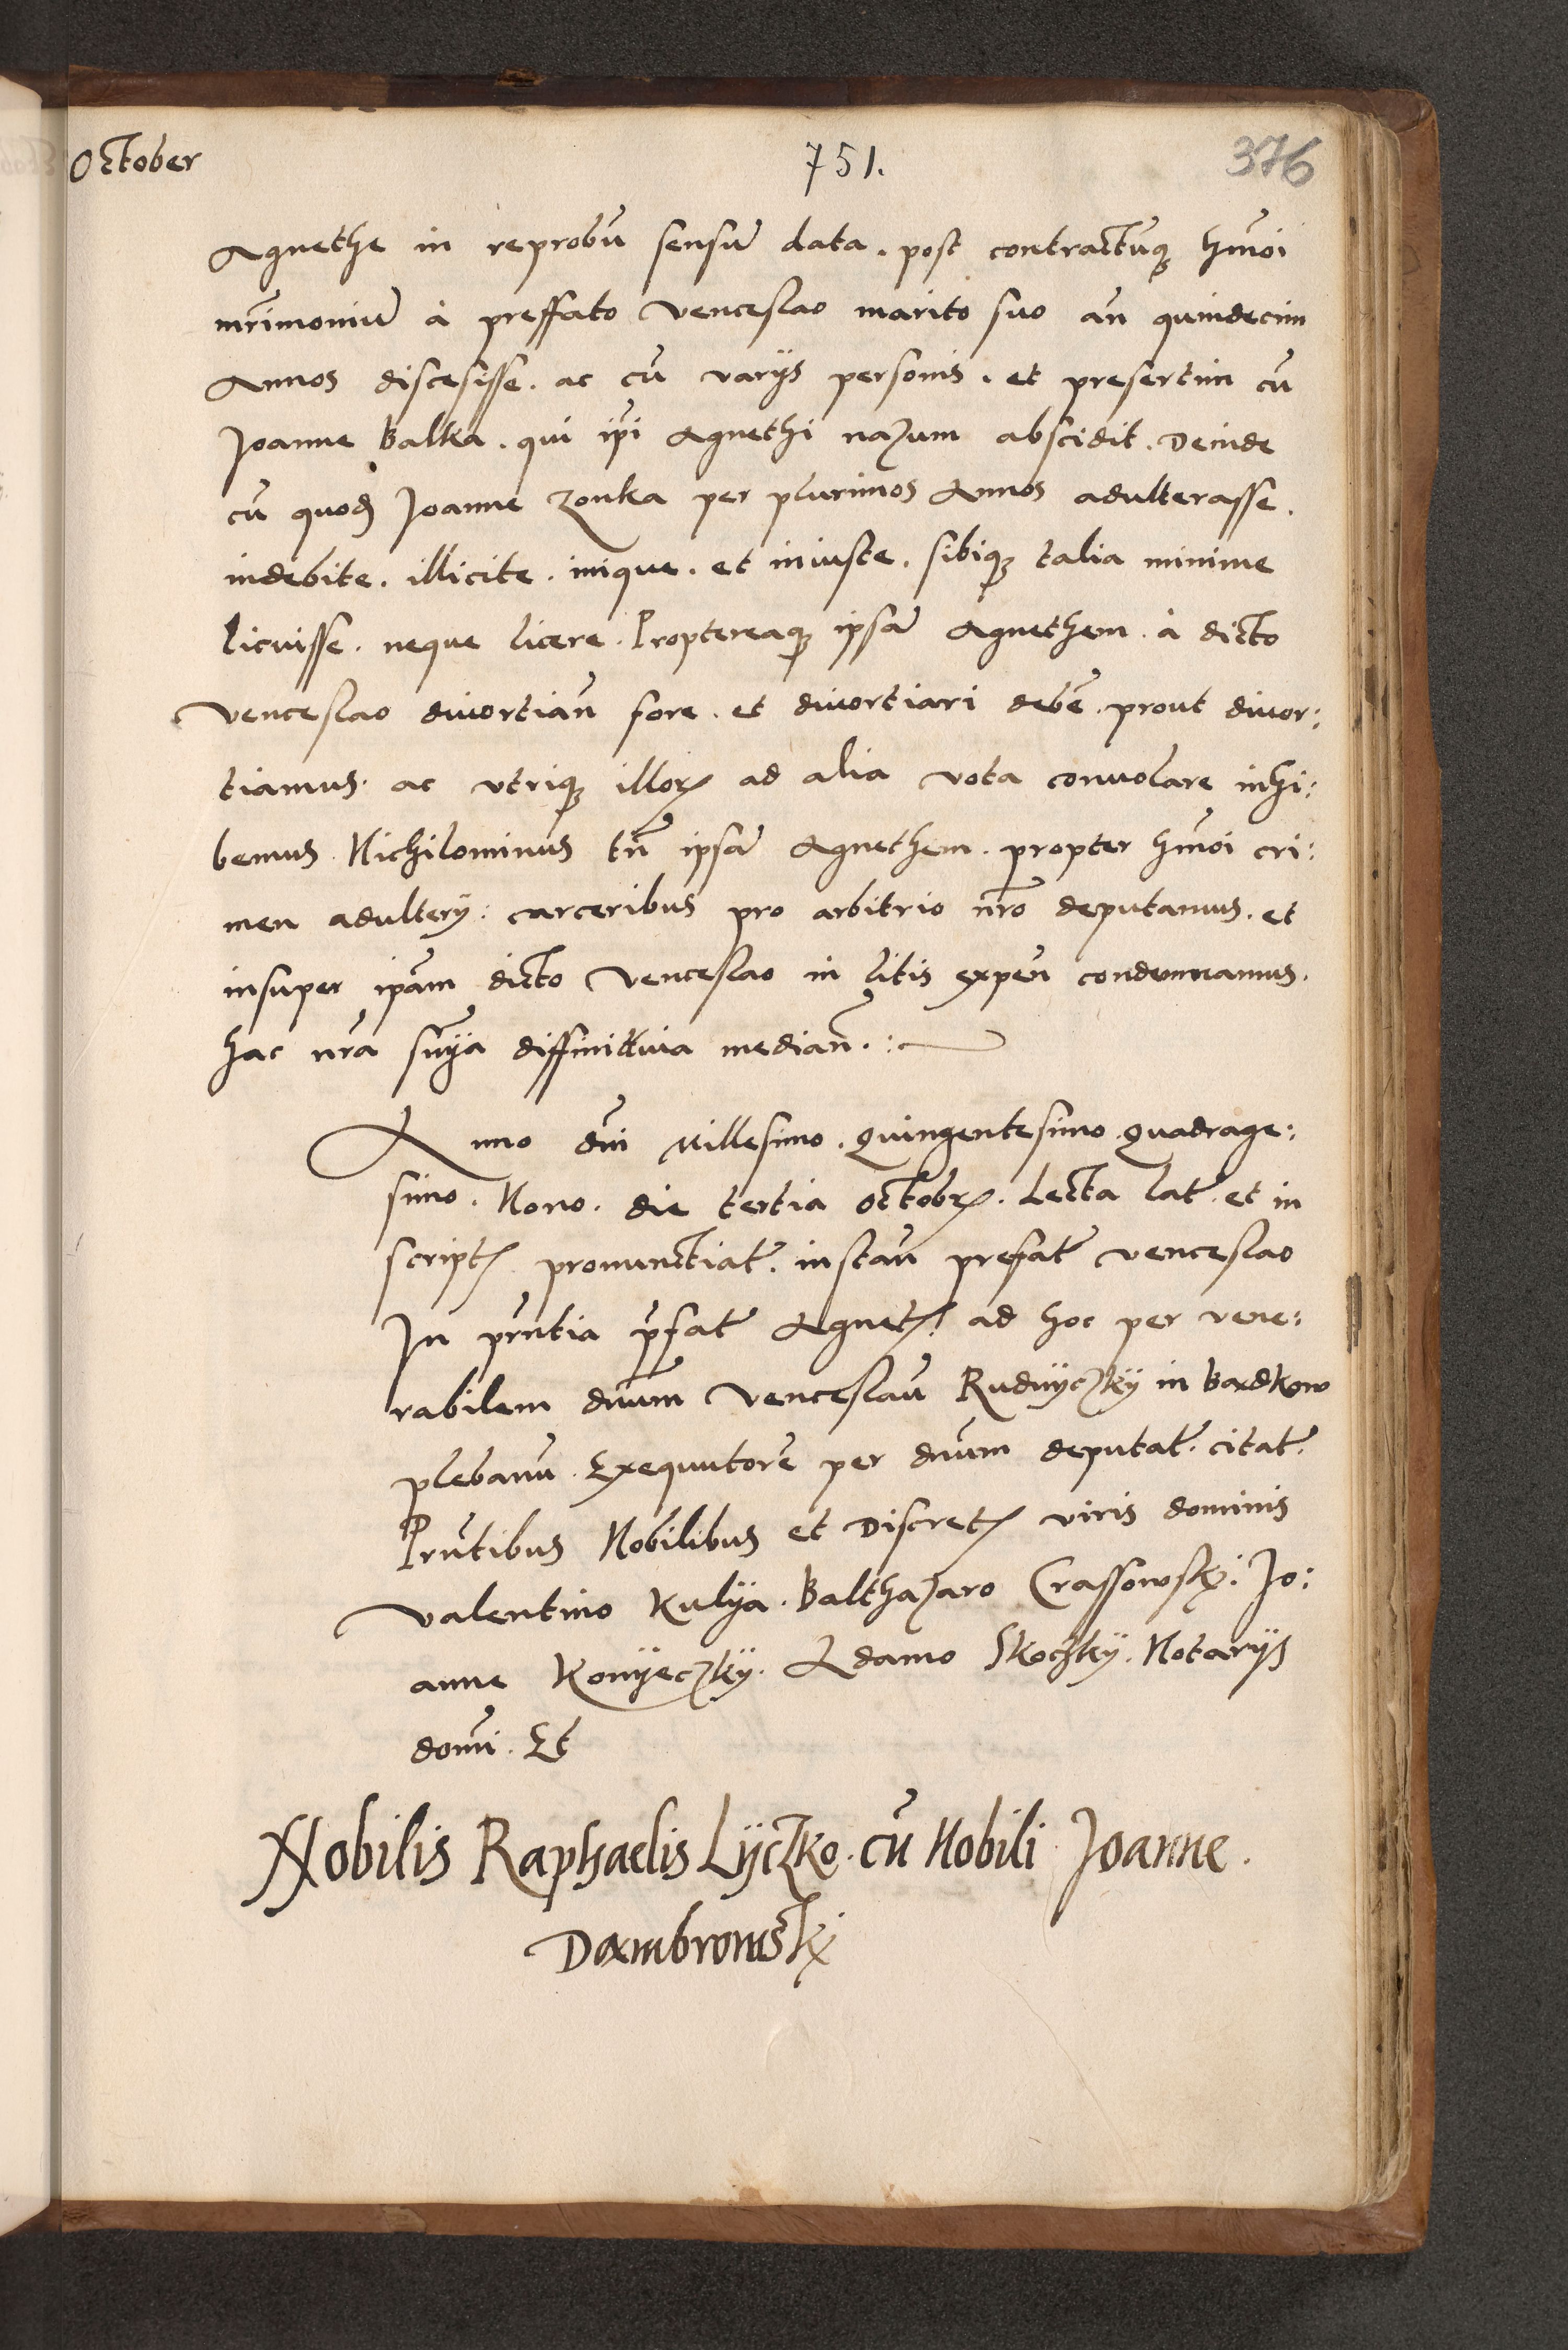 October
751.
376
Agnethe in reprobū sensū data. post contractūq₃ hm̄oi
mr̄imoniū à preffato Venceslao marito suo an̄ quindecim
Annos discesisse. ac cū varijs personis. et presertim cū
Joanne Balka. qui ip̄i Agnethi nazum abscidit. Deinde
cū quod Joanne Zonka per plurimos Annos adulterasse.
indebite. illicite. inique. et iniuste. sibiq₃ talia minime
licuisse. neque licere. Proptereaq₃ ipsā Agnethem. à dicto
Venceslao diuortian̄ fore. et diuortiari debē. prout diuor:
tiamus. ac vtriq₃ illoꝝ ad alia vota conuolare inhi:
bemus. Nichilominus tn̄ ipsā Agnethem. propter hm̄oi cri:
men adulterÿ: carceribus pro arbitrio nr̄o deputamus. et
insuper ip̄am dicto Venceslao in litis expen̄ condemnamus.
hac nr̄a sn̄ÿa diffinittiua median̄.:
Anno dn̄i Millesimo. Quingentesimo. Quadrage:
simo. Nono. die tertia Octobꝝ. Lecta lat̄. et in
scriptꝭ pronunctiat̄. instan̄ prefat̄ Venceslao
In pn̄tia p̄fat̄ Agnetꝭ! ad hoc per vene:
rabilem dn̄um Venceslaū Rudnÿczkÿ in Bardkow
plebanū. Exequutorē per dn̄um deputat̄. citat̄.
Prn̄tibus Nobilibus et Discretꝭ viris dominis
Valentino Kulÿa. Balthazaro Crassowskj. Jo:
anne Konÿeczkÿ. Adamo Skoczkÿ. Notarÿs
dom̄i. Et
Nobilis Raphaelis Lÿczko. cū Nobili Joanne.
Dambrowskj